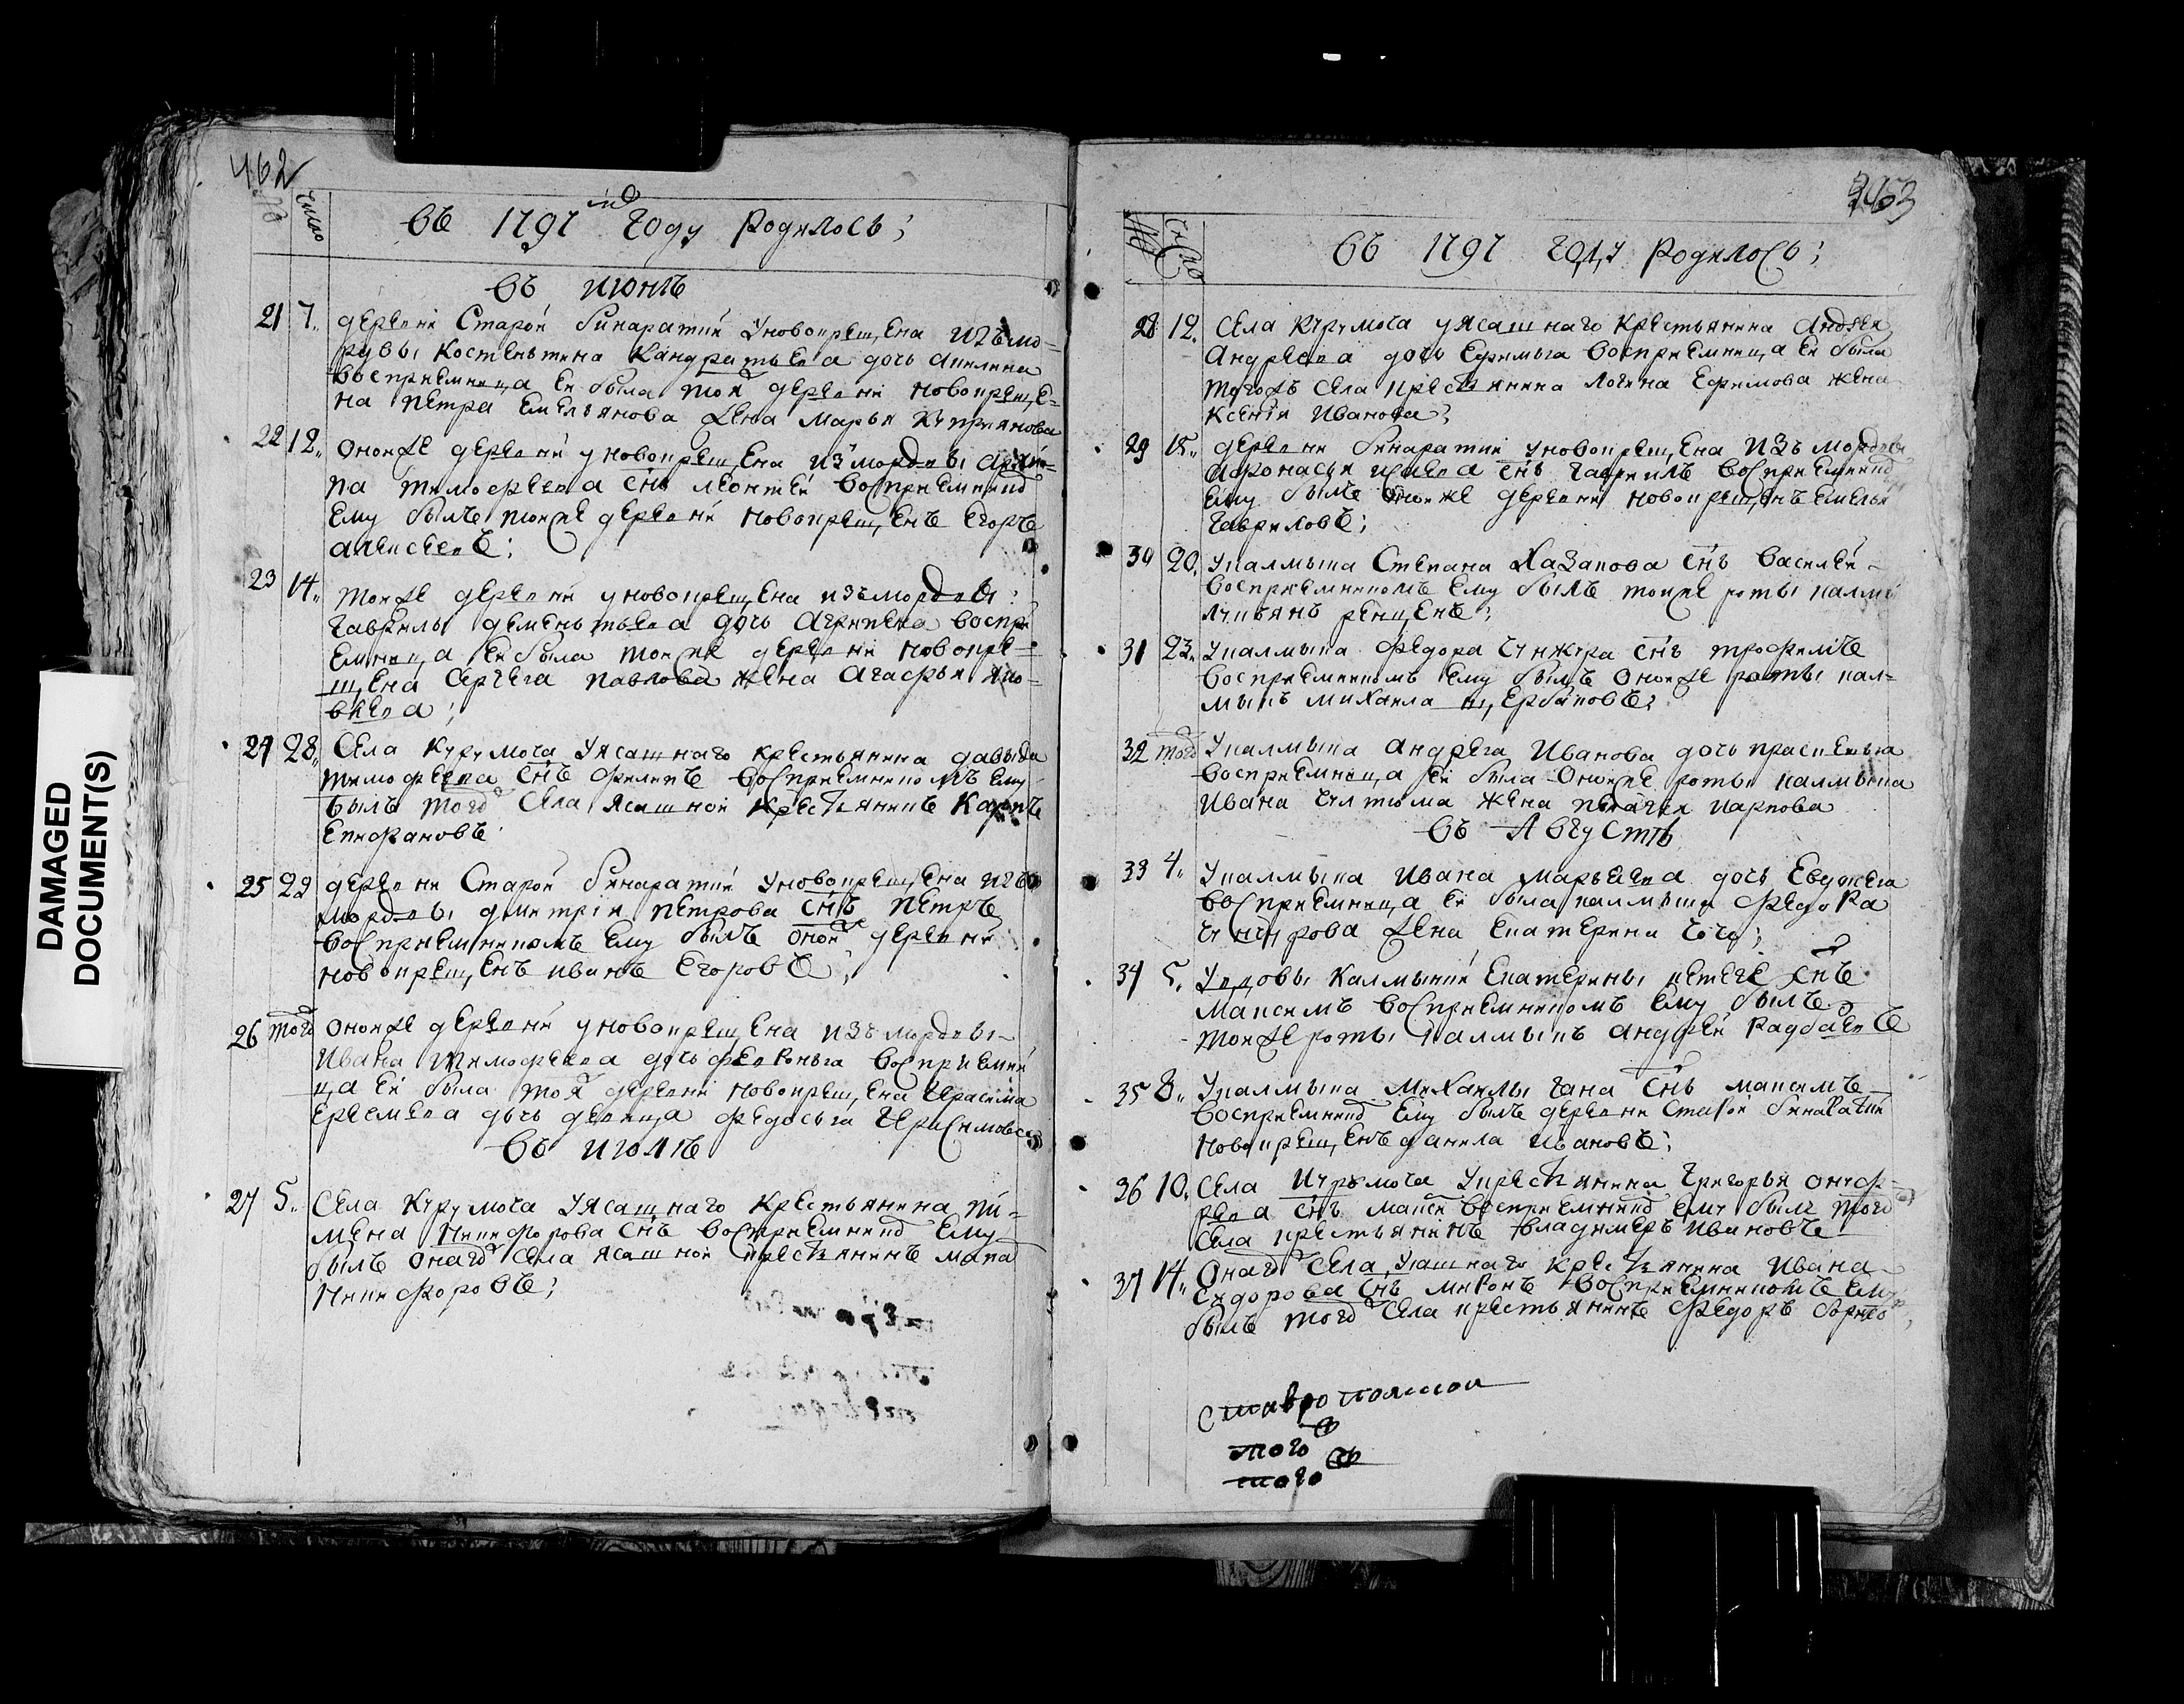 462
№ число въ 1797 м году родилось;
въ июнѣ
21 7. деревни Старой Бинаратки у новокрещена изъ мо-
рдвы Костентина Кандратьева дочь Акилина
восприемница ей была той деревни новокреще-
на Петра Емельянова жена Марья Куприянова
22 12. оной же деревни у новокрещена из мордвы
па Тимофеева снъ Леонтей восприемник
ему былъ той же деревни новокрещенъ Егоръ
Алексеевъ;
23 14. той же деревни у новокрещена изъ мордвы
Гаврилы Дементьева дочь Агрипена воспри
емница ей была той же деревни новокре-
щена Сергея Павлова жена Агафья Яко-
влева;
24 28. Села Курумоча у ясашнаго крестьянина Давыда
Тимофеева снъ Филипъ восприемникомъ ему
былъ того села ясашной крестьянинъ Карпъ
Епифановъ
25 29 деревни Старой Бинаратки у новокрещена изъ
мордвы Дмитрия Петрова снъ Петръ
восприемникомъ ему былъ оной деревни
новокрещенъ Иванъ Егоровъ;
26 того оной же деревни у новокрещена изъ мордвы
Ивана Тимофеева дочь Февроньа восприемни
ца ей была той деревни новокрещена Ерасима
Еремеева дочь девица Федосья Ерасимова
въ июлѣ
27 5. Села Курумоча у ясашнаго крестьянина Пи-
мена Никифорова снъ восприемник ему
былъ онаго села ясашной крестьянинъ
Никифоровъ;
263
№ число въ 1797 году родилось;
28 12. Села Курумоча у ясашнаго крестьянина Андрея
Андреева дочь Ефимья восприемница ей была
того жъ села крестьянина Логина Ефимова жена
Ксения Иванова;
29 15. деревни Бинаратки у новокрещена изъ мордвы
Афонасья снъ Гаврилъ восприемник
ему былъ оной же деревни новокрещенъ Емельян
Гавриловъ;
30 20. у калмыка Степана Хазыкова снъ Василей
восприемникомъ ему былъ той же роты калмык
Лукъянъ
31 23. у калмыка Федора снъ Трофимъ
восприемникомъ ему былъ оной же роты кал-
мыкъ Михаила Щербаковъ;
32 того у калмыка Андрея Иванова дочь Прасковья
восприемница ей была оной же роты калмыка
Ивана жена Пелагея Карпова
въ Августѣ
33 4. у калмыка Ивана дочь Евдокея
восприемница ей была калмыка Федора
жена Екатерина
34 5. у вдовы калмычки Екатерины снъ
Максимъ восприемникомъ ему былъ
той же роты калмыкъ Андрей
35 8. у калмыка Михайлы снъ Максимъ
восприемник ему былъ деревни Старой Бинаратки
новокрещенъ Данила Ивановъ;
36 10. Села Курумоча у крестьянина Григорья Онуф-
реева снъ восприемник ему былъ того
села крестьянинъ Владимеръ Ивановъ
37 14. Онаго села, у яшнаго крестьянина Ивана
Сидорова снъ Миронъ восприемникомъ ему
былъ того села крестьянинъ Федоръ
Ставропольскои
того
того
DAMAGED
DOCUMENT(S)